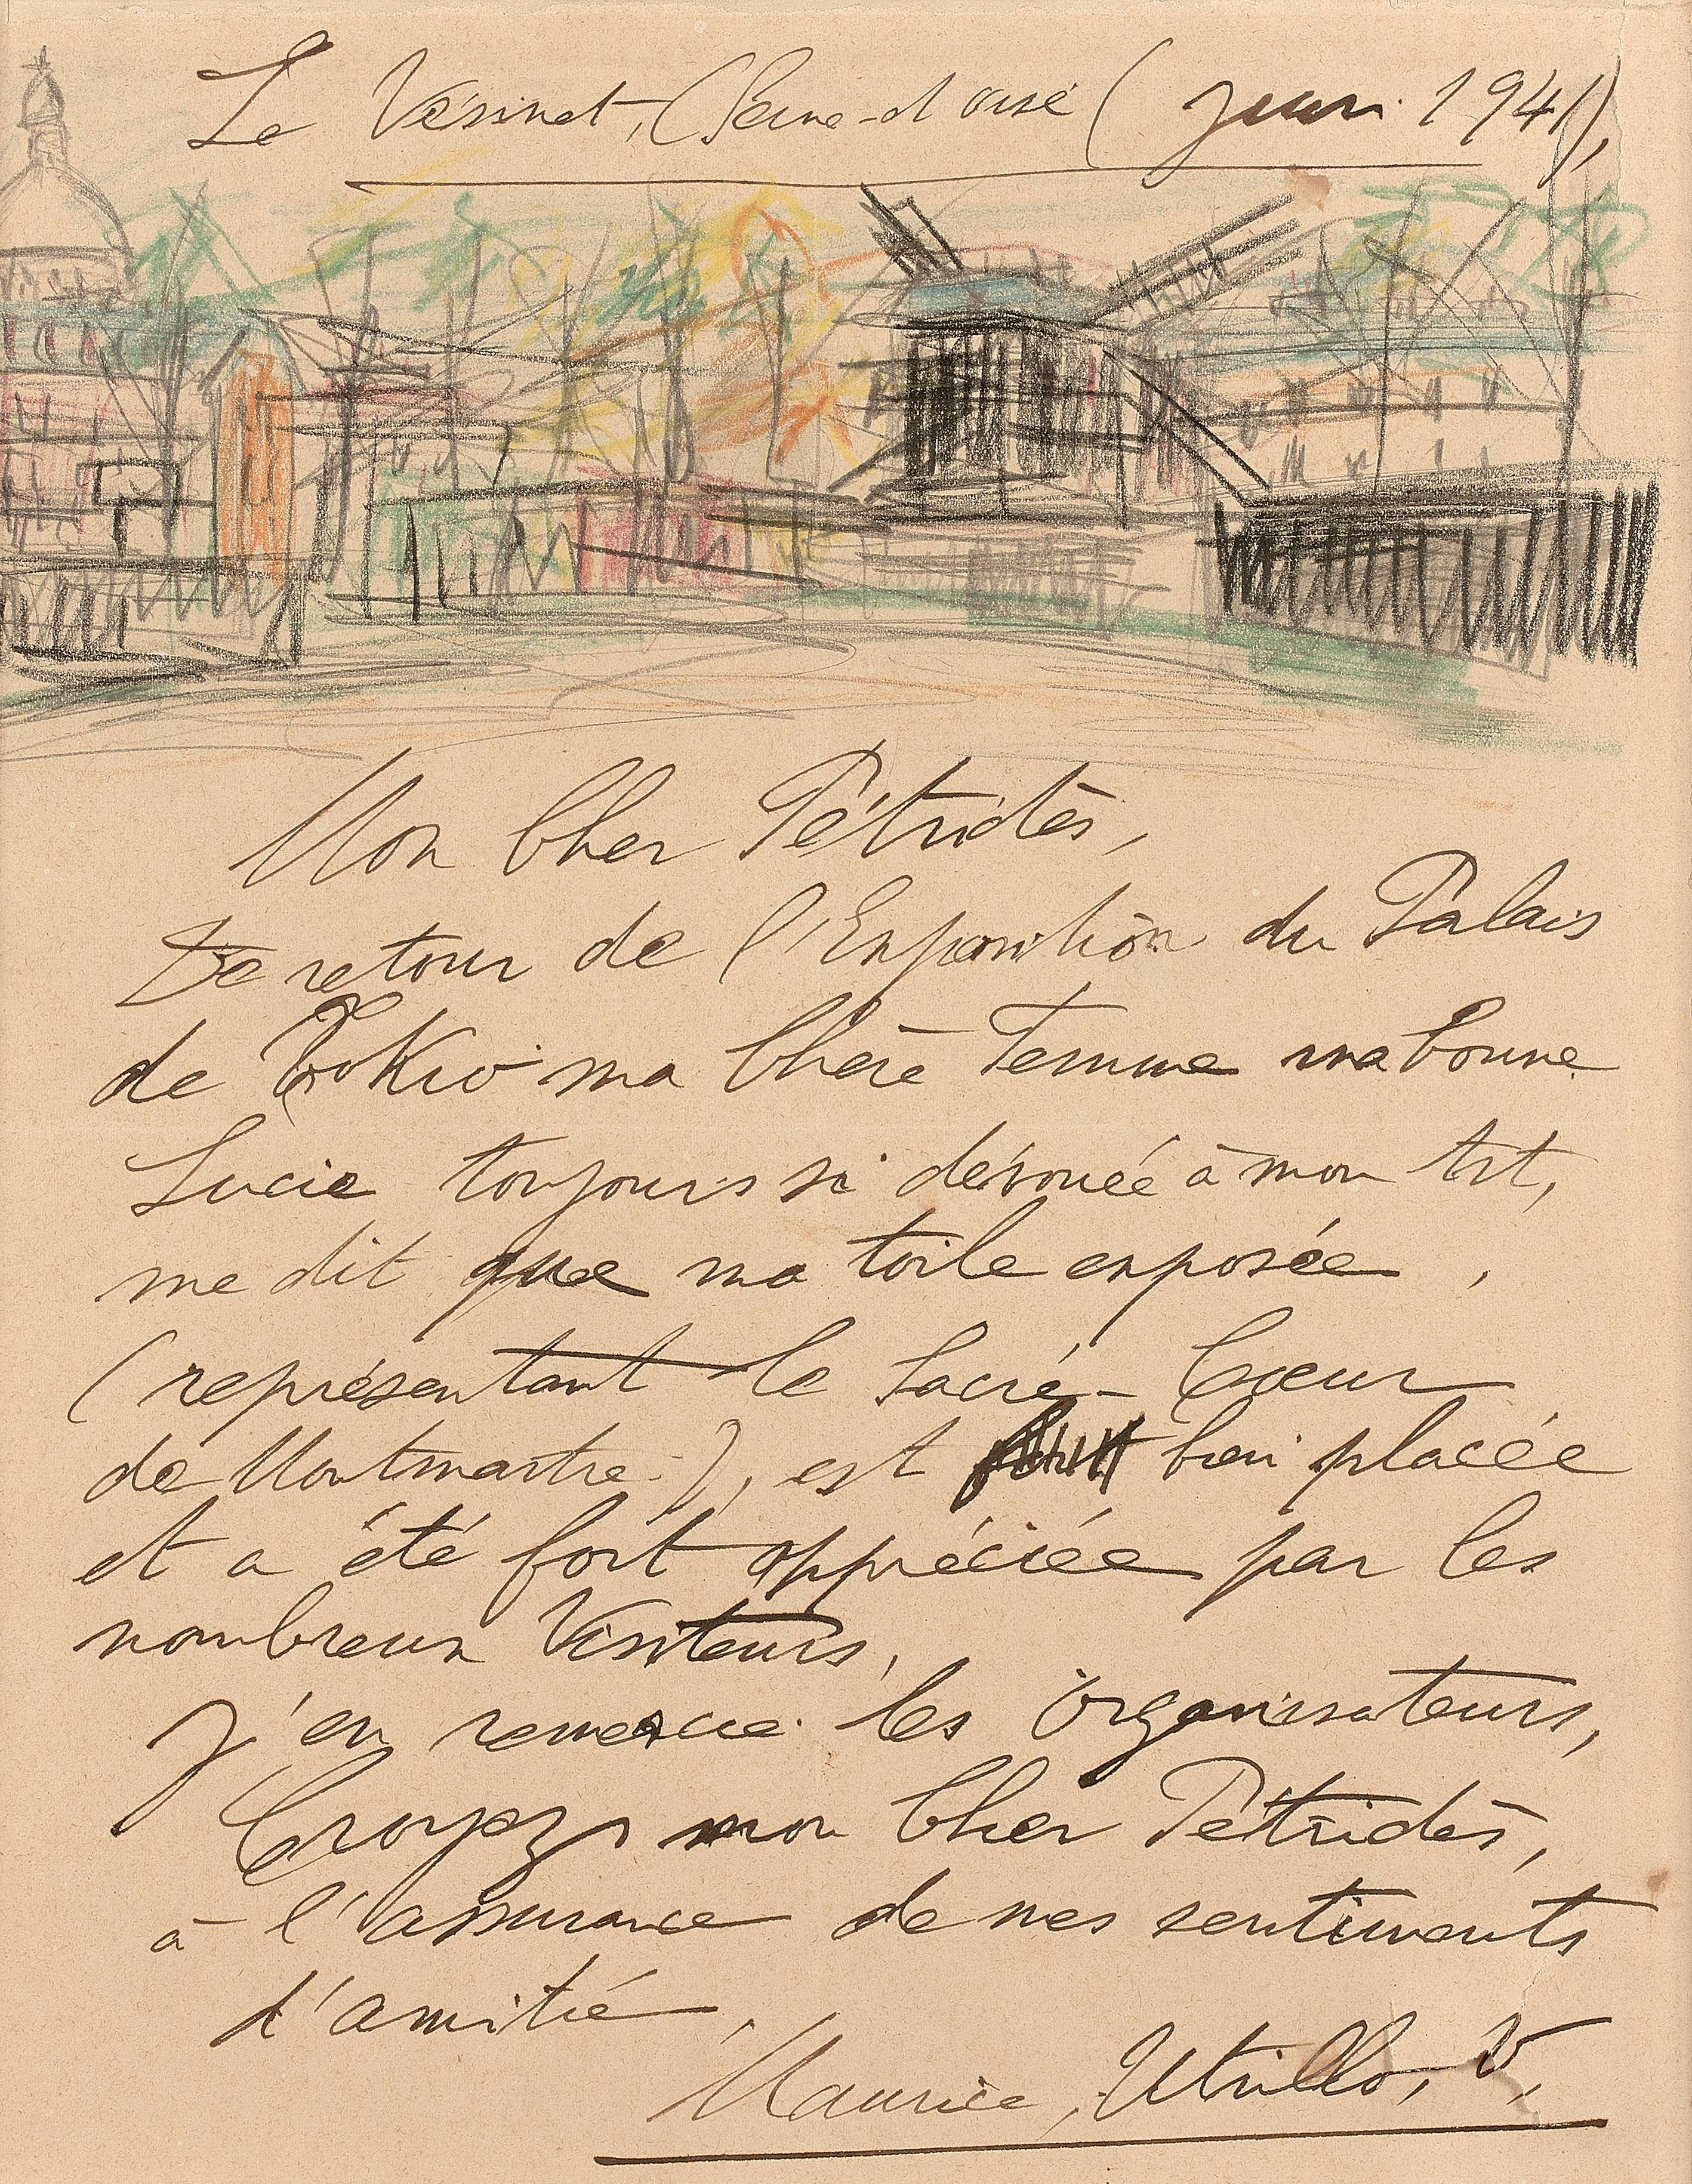 Le Vésinet, (Seine-et oise ( juin 1941),
Mon Cher Pétridès,
De retour de l'Exposition du Palais
de Tokio ma Chère Femme ma bonne
Lucie toujours si dévouée à mon Art,
me dit que ma toile exposée ,
(représentant le Sacré-Cœur
de Montmartre.), est bien placée
et a été fort appréciée par les
nombreux Visiteurs,
J'en remercie les organisateurs,
Croyez, mon Cher Pétridès,
à l'assurance de mes sentiments
d'amitié,
Maurice, Utrillo, V,